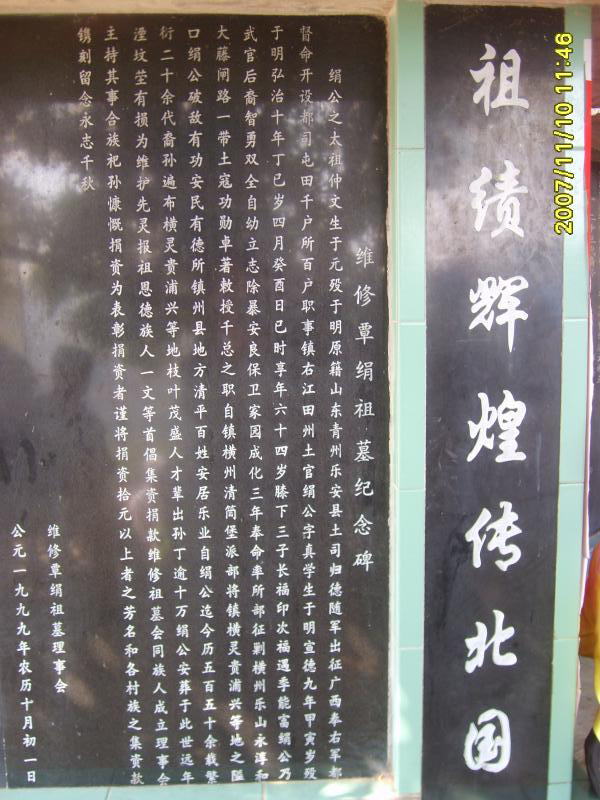 祖绩辉煌传北国
维修覃绢祖墓纪念碑
绢公之太祖仲文生于元殁于明原籍山东青州乐安县土司归德随军出征广西奉右军都
督命开设都司屯田千户所百户职事镇右江田州土官绢公字真学生于明宣德九年甲寅岁殁
于明弘治十年丁巳岁四月癸酉日巳时享年六十四岁膝下三子长福印次福遇季能富绢公乃
武官后裔智勇双全自幼立志除暴安良保卫家园成化三年奉命率所部征剿横州乐山永淳和
大藤闸路一带土寇功勋卓著敕授千总之职自镇横州清简堡派部将镇横灵贵浦兴等地之隘
口绢公破敌有功安民有德所镇州县地方清平百姓安居乐业自绢公迄今历五百五十余载繁
衍二十余代裔孙遍布横灵贵浦兴等地枝叶茂盛人才辈出孙丁逾十万绢公安葬于此世远年
湮坟茔有损为维护先灵报祖恩德族人一文等首倡集资捐款维修祖墓会同族人成立理事会
主持其事合族祀孙慷慨捐资为表彰捐资者谨将捐资拾元以上者之芳名和各村族之集资款
镌刻留念永志千秋
维修覃绢祖墓理事会
公元一九九九年农历十月初一日
2007/11/10 11:46